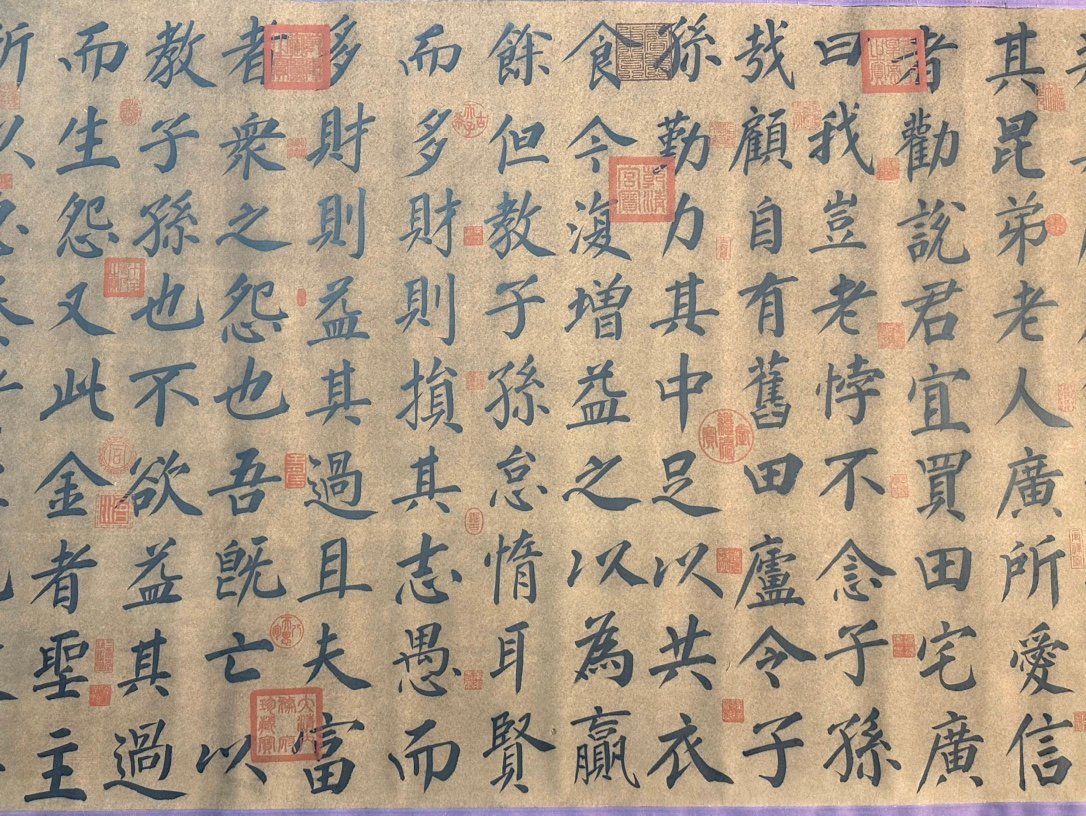 其昆弟老人廣所愛信
者勸說君宜買田宅廣
曰我豈老悖不念子孫
哉顧自有舊田廬令子
孫勤力其中足以共衣
食今復增益之以為贏
餘但教子孫怠惰耳賢
而多財則損其志愚而
多財則益其過且夫富
者衆之怨也吾既亡以
教子孫也不欲益其過
而生怨又此金者聖主